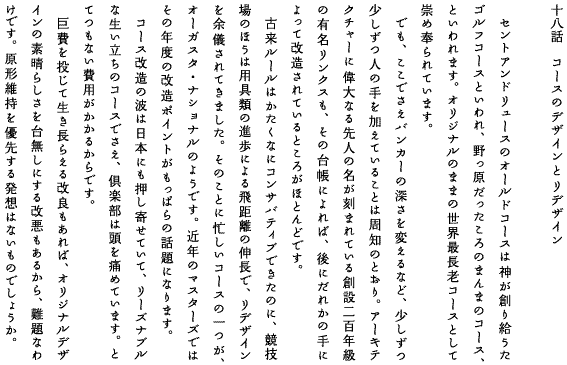 十八話　コースのデザインとリデザイン
　セントアンドリュースのオールドコースは神が創り給うた
ゴルフコースといわれ、野っ原だったころのまんまのコース、
といわれます。オリジナルのままの世界最長老コースとして
崇め奉られています。
　でも、ここでさえバンカーの深さを変えるなど、少しずつ
少しずつ人の手を加えていることは周知のとおり。アーキテ
クチャーに偉大なる先人の名が刻まれている創設二百年級
の有名リンクスも、その台帳によれば、後にだれかの手に
よって改造されているところがほとんどです。
　古来ルールはかたくなにコンサバティブできたのに、競技
場のほうは用具類の進歩による飛距離の伸長で、リデザイン
を余儀されてきました。そのことに忙しいコースの一つが、
オーガスタ・ナショナルのようです。近年のマスターズでは
その年度の改造ポイントがもっぱらの話題になります。
　コース改造の波は日本にも押し寄せていて、リーズナブル
な生い立ちのコースでさえ、倶楽部は頭を痛めています。と
てつもない費用がかかるからです。
　巨費を投じて生き長らえる改良もあれば、オリジナルデザ
インの素晴らしさを台無しにする改悪もあるから、難題なわ
けです。原形維持を優先する発想はないものでしょうか。